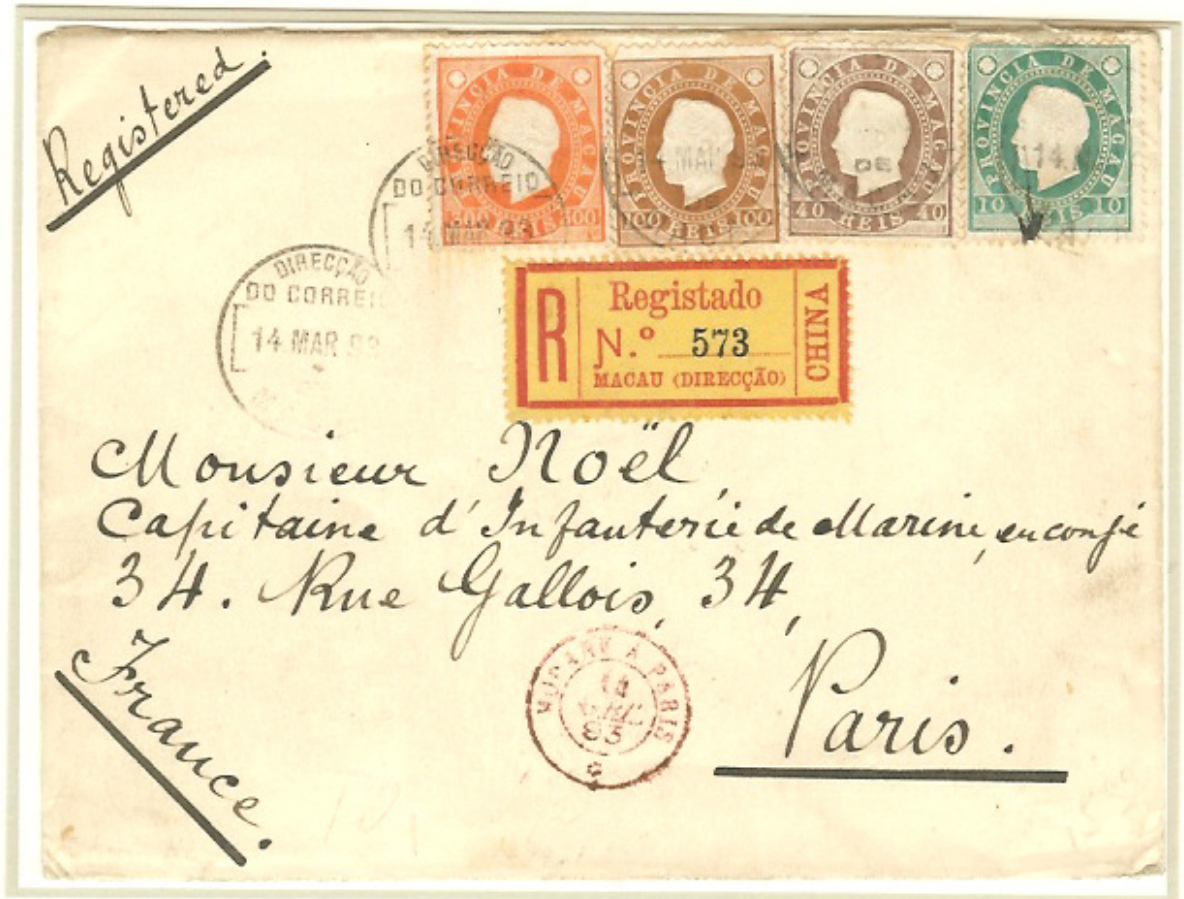 Registered.
PROVINCIA DE MACAU
REIS 300
PROVINCIA DE MACAU
100 REIS 100
PROVINCIA DE MACAU
40 REIS 40
PROVINCIA DE MACAU
10 REIS 10
DIRECÇÃO
DO CORREIO
14 MAR 93
14 MAR 93
DE
14
DIRECÇÃO
DO CORREIO
14 MAR 93
R
Registado
N.º 573
MACAU (DIRECÇÃO)
CHINA
Monsieur Noël,
Capitaine d'Infanterie de Marine, en congé
34. Rue Gallois, 34,
Paris.
France.
A PARIS
93